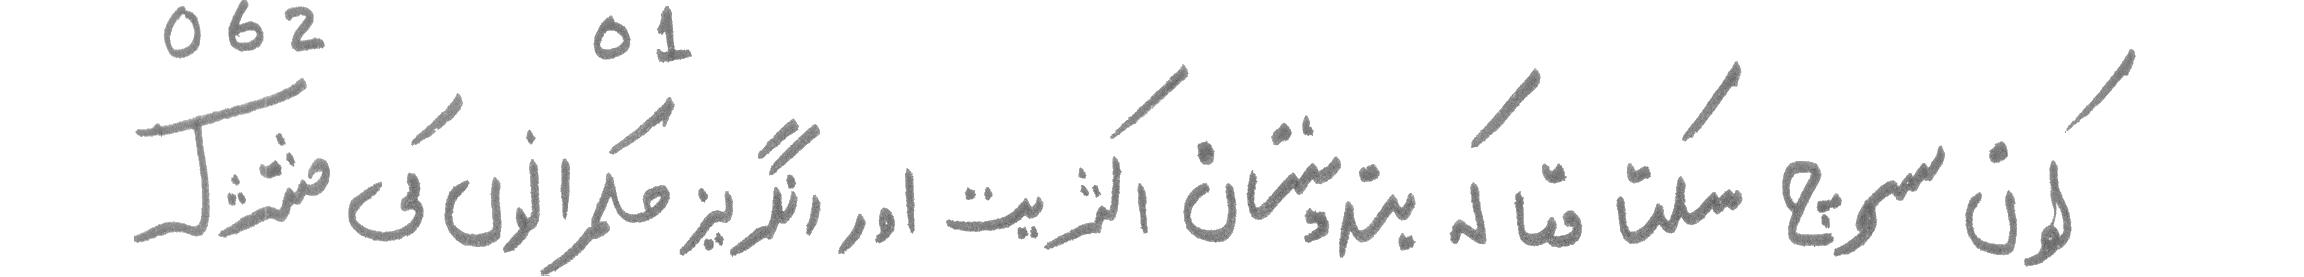 062 01
کون سوچ سکتا تھا کہ ہندوستان اکثریت اور انگریز حکمرانوں کی مشترکہ